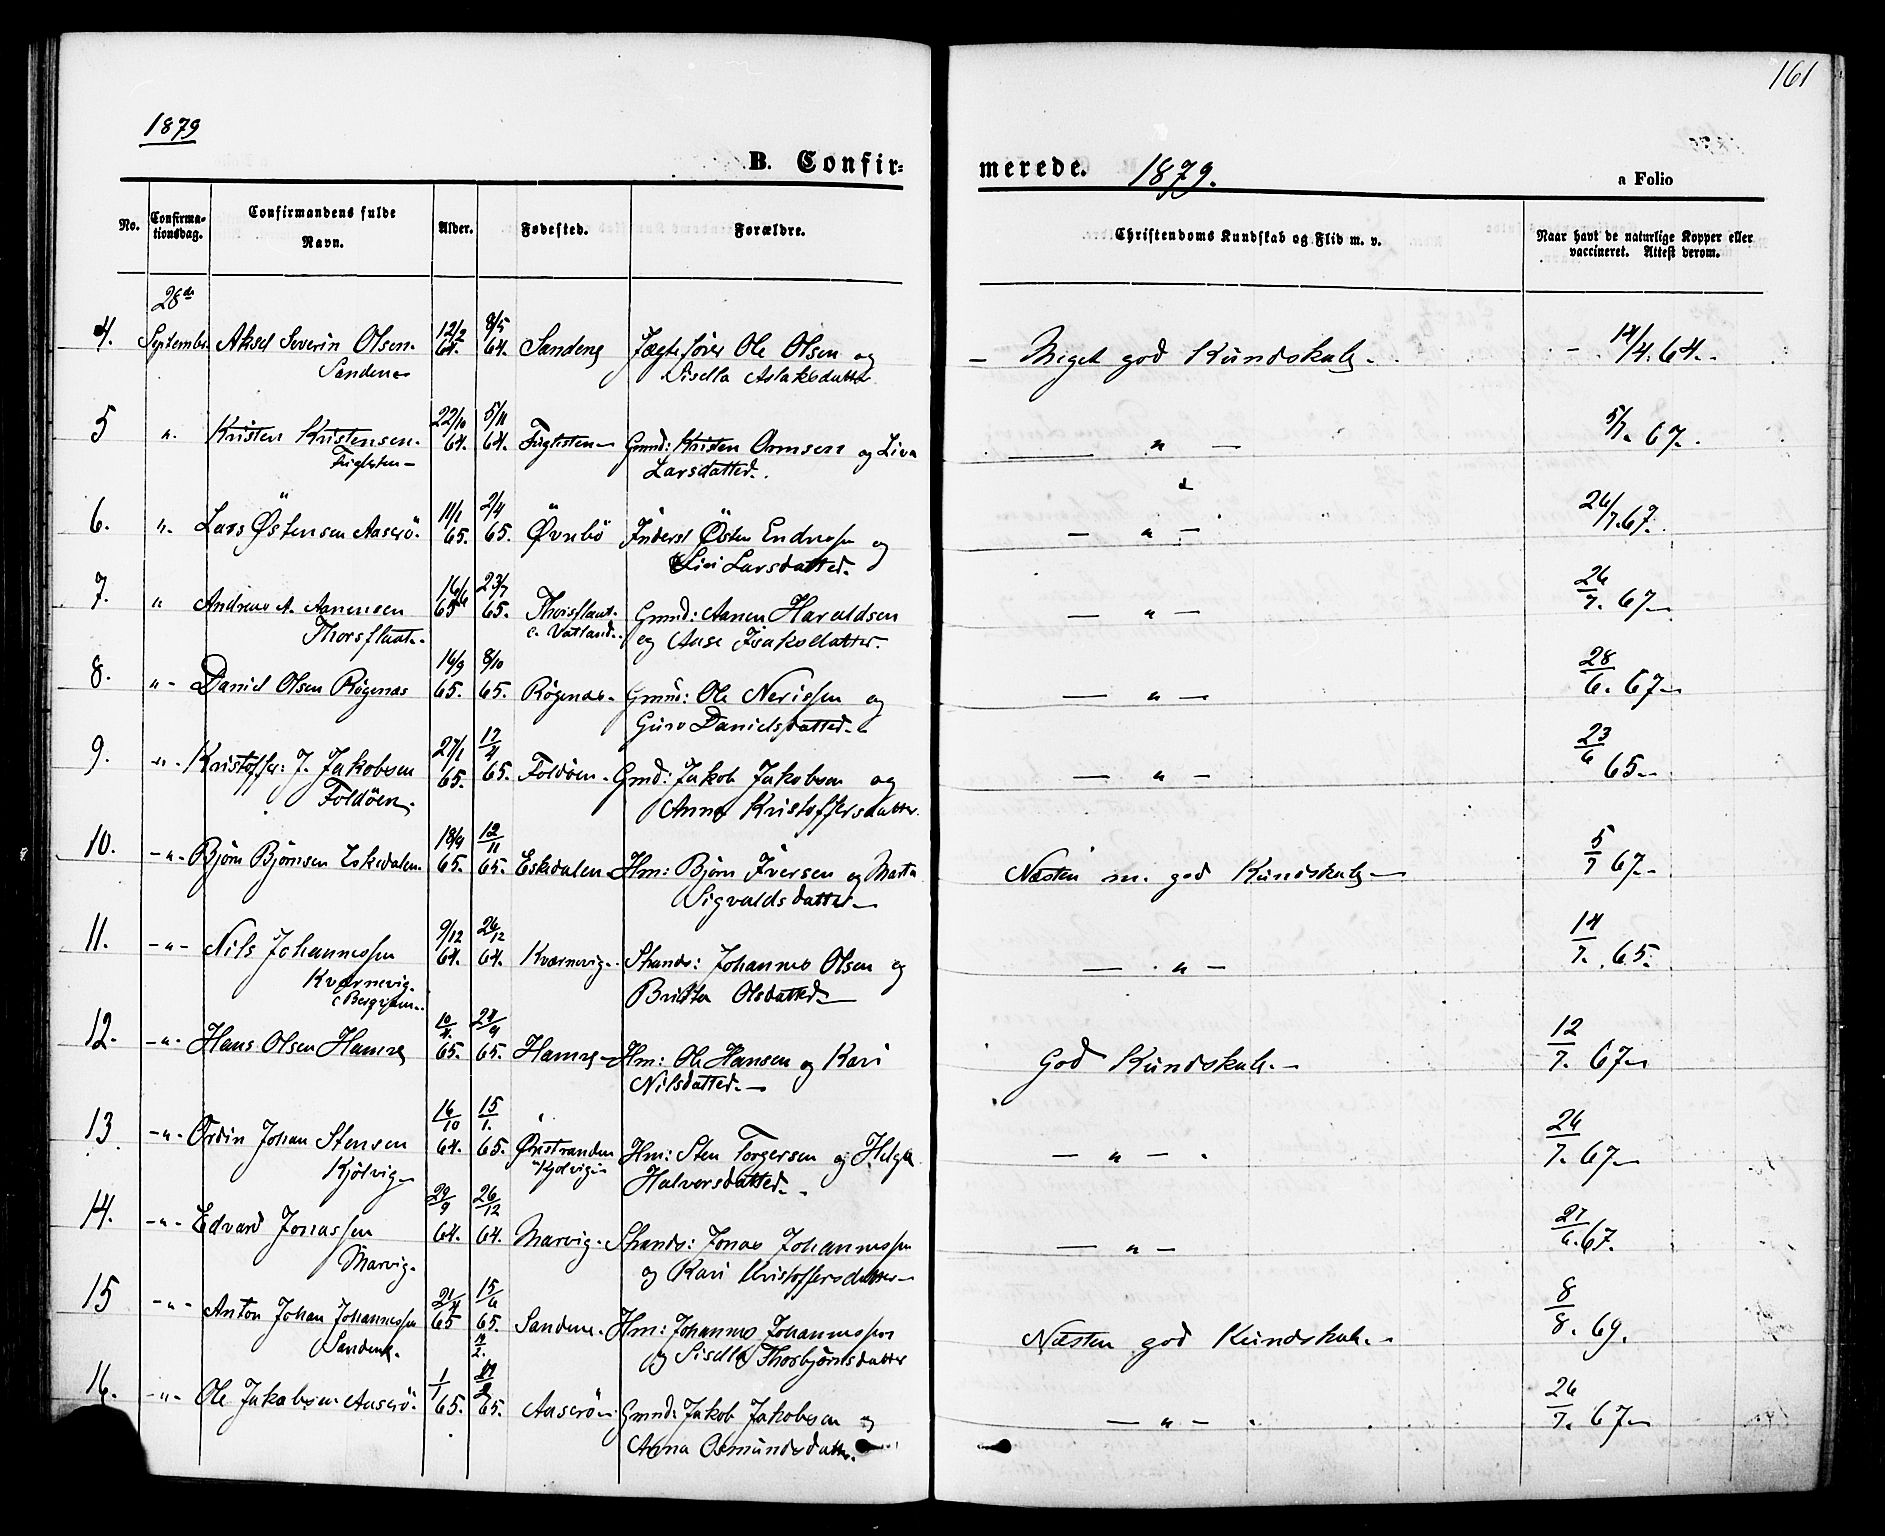 161
1879
B. Confirmerede. 1879.
a Folio
No. Confirmationsdag. Confirmandens fulde Navn. Alder. Fødested. Forældre. Christendoms Kundskab og Flid m. v. Naar havt de naturlige Kopper eller vaccineret. Attest derom.
28de
4. September Aksel Severin Olsen 64. 8/5 64. Sandene Jægtefører Ole Olsen og — Meget god Kundskab. 14/4. 64.
Sandene Sisella Aslaksdatter
5 ". Kristen Kristensen. 22/10 64. 5/11 64. Fuglesten Grmd: Kristen Ormsen og Liva — " — 5/7. 67.
Fuglesten Larsdatter.
6. ". Lars Østensen Aaserö. 11/1 65. 2/4 65. Øvrebö Inderst Östen Endresen og — " — 26/7. 67.
Livi Larsdatter.
7. " Andreas A. Aanensen 16/6 65 23/7 65. Thorsflaat. Grmd: Aanen Haraldsen — " — 26/7. 67
Thorsflaat. Vatland og Aase Isaksdatter.
8. " - Daniel Olsen Rögenas 16/9 65. 8/10 65. Rögenas. Grmd: Ole Nerissen og — " — 28/6. 67
Guro Danielsdatter.
9. " - Kristoffer J. Jakobsen 27/1 65. 17/4 65. Foldöen Gmd: Jakob Jakobsen og — " — 23/6 65
Foldöen Anna Kristoffersdatter
10. - " - Björn Björnsen Eskedalen 18/9 65. 12/11 65. Eskedalen Hm: Björn Iversen og Marta Næsten m. god Kundskab 5/7 67
Sigvaldsdatter
11. - " - Nils Johannessen 9/12 64. 26/12 64. Kværnevig Strands: Johannes Olsen og — " — 14/7. 65.
Kværnevig. Britta Olsdatter
12. - " - Hans Olsen Hamre 10/4 65. 65. Hamre Hm: Ole Hansen og Kari God Kundskab. 12/7. 67
Nilsdatter.
13 - " - Ordin Johan Stensen 16/10 64. 15/1. 65. Ørestranden Hm: Sten Torgersen og Helga — " — 26/7. 67
Kjölvig Kjølvig Halvorsdatter.
14. - " - Edvard Jonassen 29/9 64. 26/12 64. Marvig. Strands: Jonas Johannessen — " — 27/6. 67.
Marvig. og Kari Kristoffersdatter
15 - " - Anton Johan Johannessen 21/4 65 15/6 65. Sandene. Hm: Johannes Johannessen Næsten god Kundskab. 8/8. 69.
Sandene. og Sisella Thorbjörnsdatter
16. - " - Ole Jakobsen Aaserö. 1/1 65. 65. Aaserö Grmd: Jakob Jakobsen og — " — 26/7. 67
Anna Osmundsdatter.